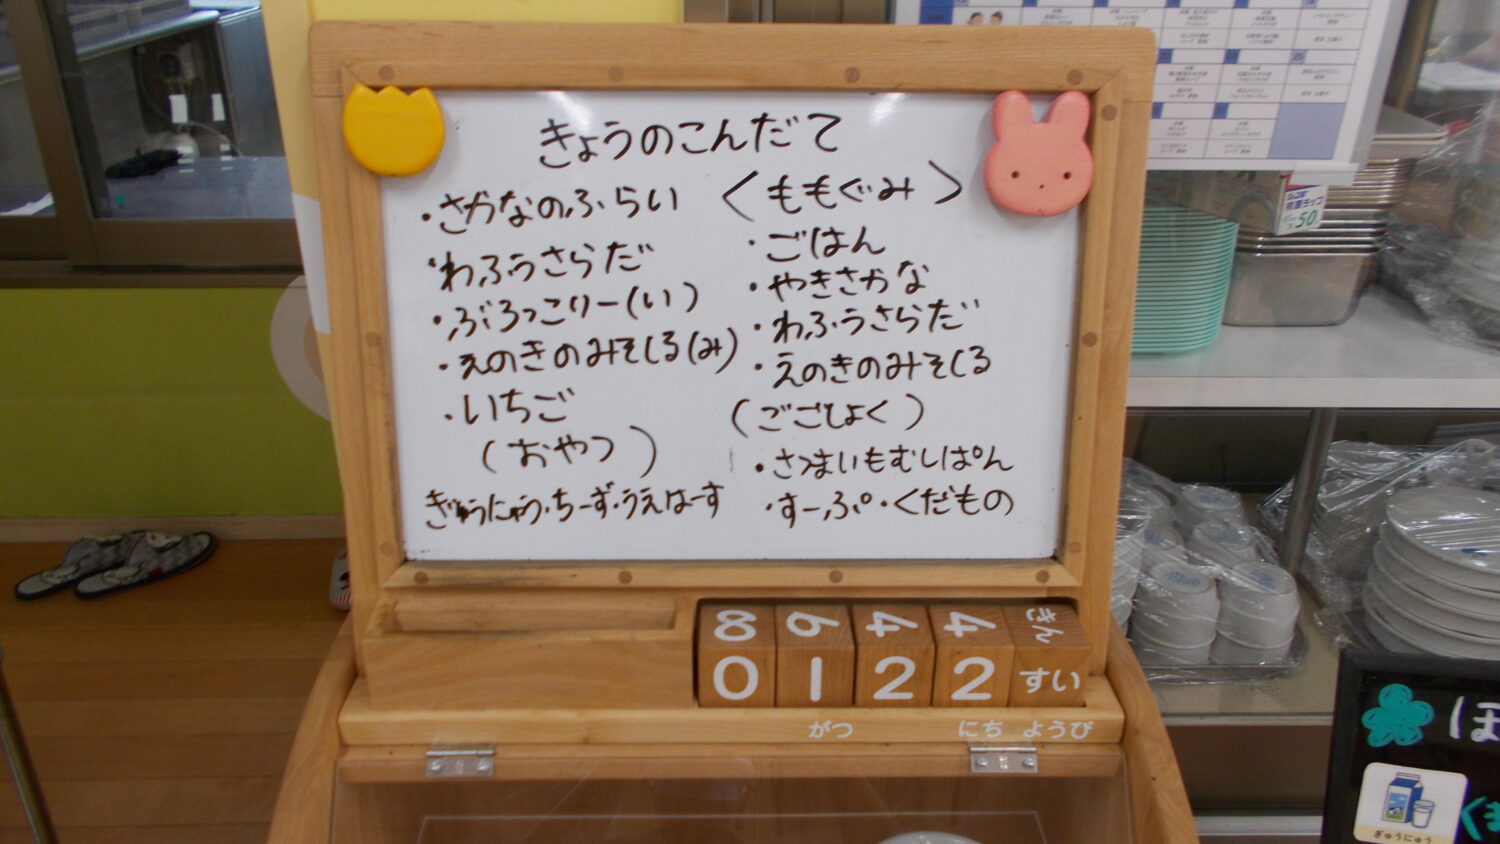 きょうのこんだて
・さかなのふらい
・わふうさらだ
・ぶろっこりー(い)
・えのきのみそしる(み)
・いちご
(おやつ)
ぎゅうにゅう・ちーず・うえはーす
〈ももぐみ〉
・ごはん
・やきさかな
・わふうさらだ
・えのきのみそしる
(ごごしょく)
・さつまいもむしぱん
・すーぷ・くだもの
8 6 4 4 きん
0 1 2 2 すい
がつ にち ようび
50
ぎゅうにゅう